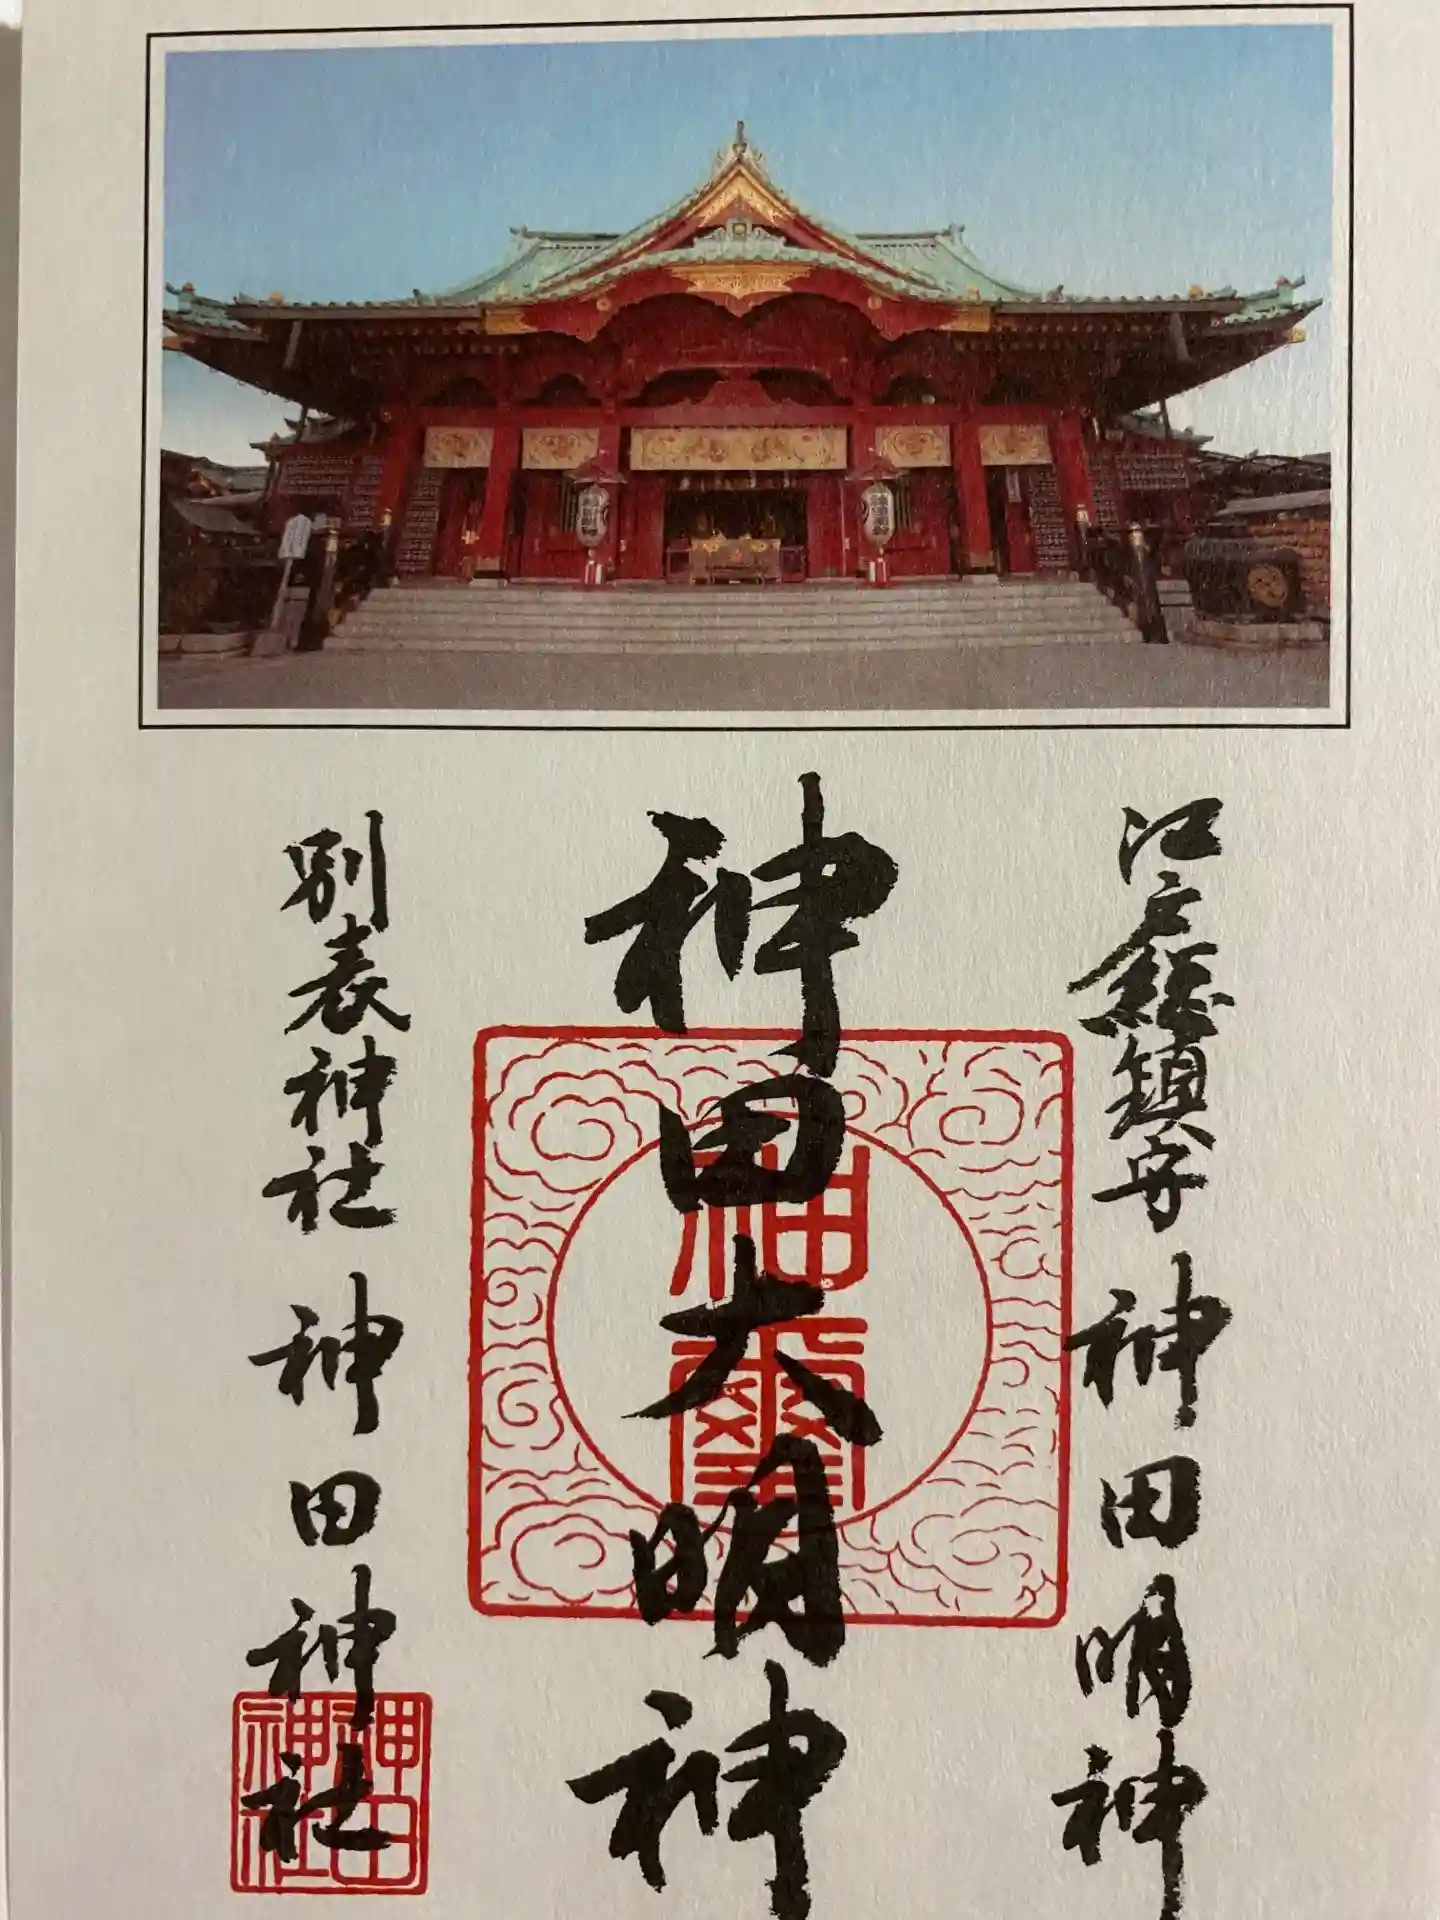 江戸總鎮守 神田明神
神田大明神
別表神社 神田神社
神璽
神田
神社